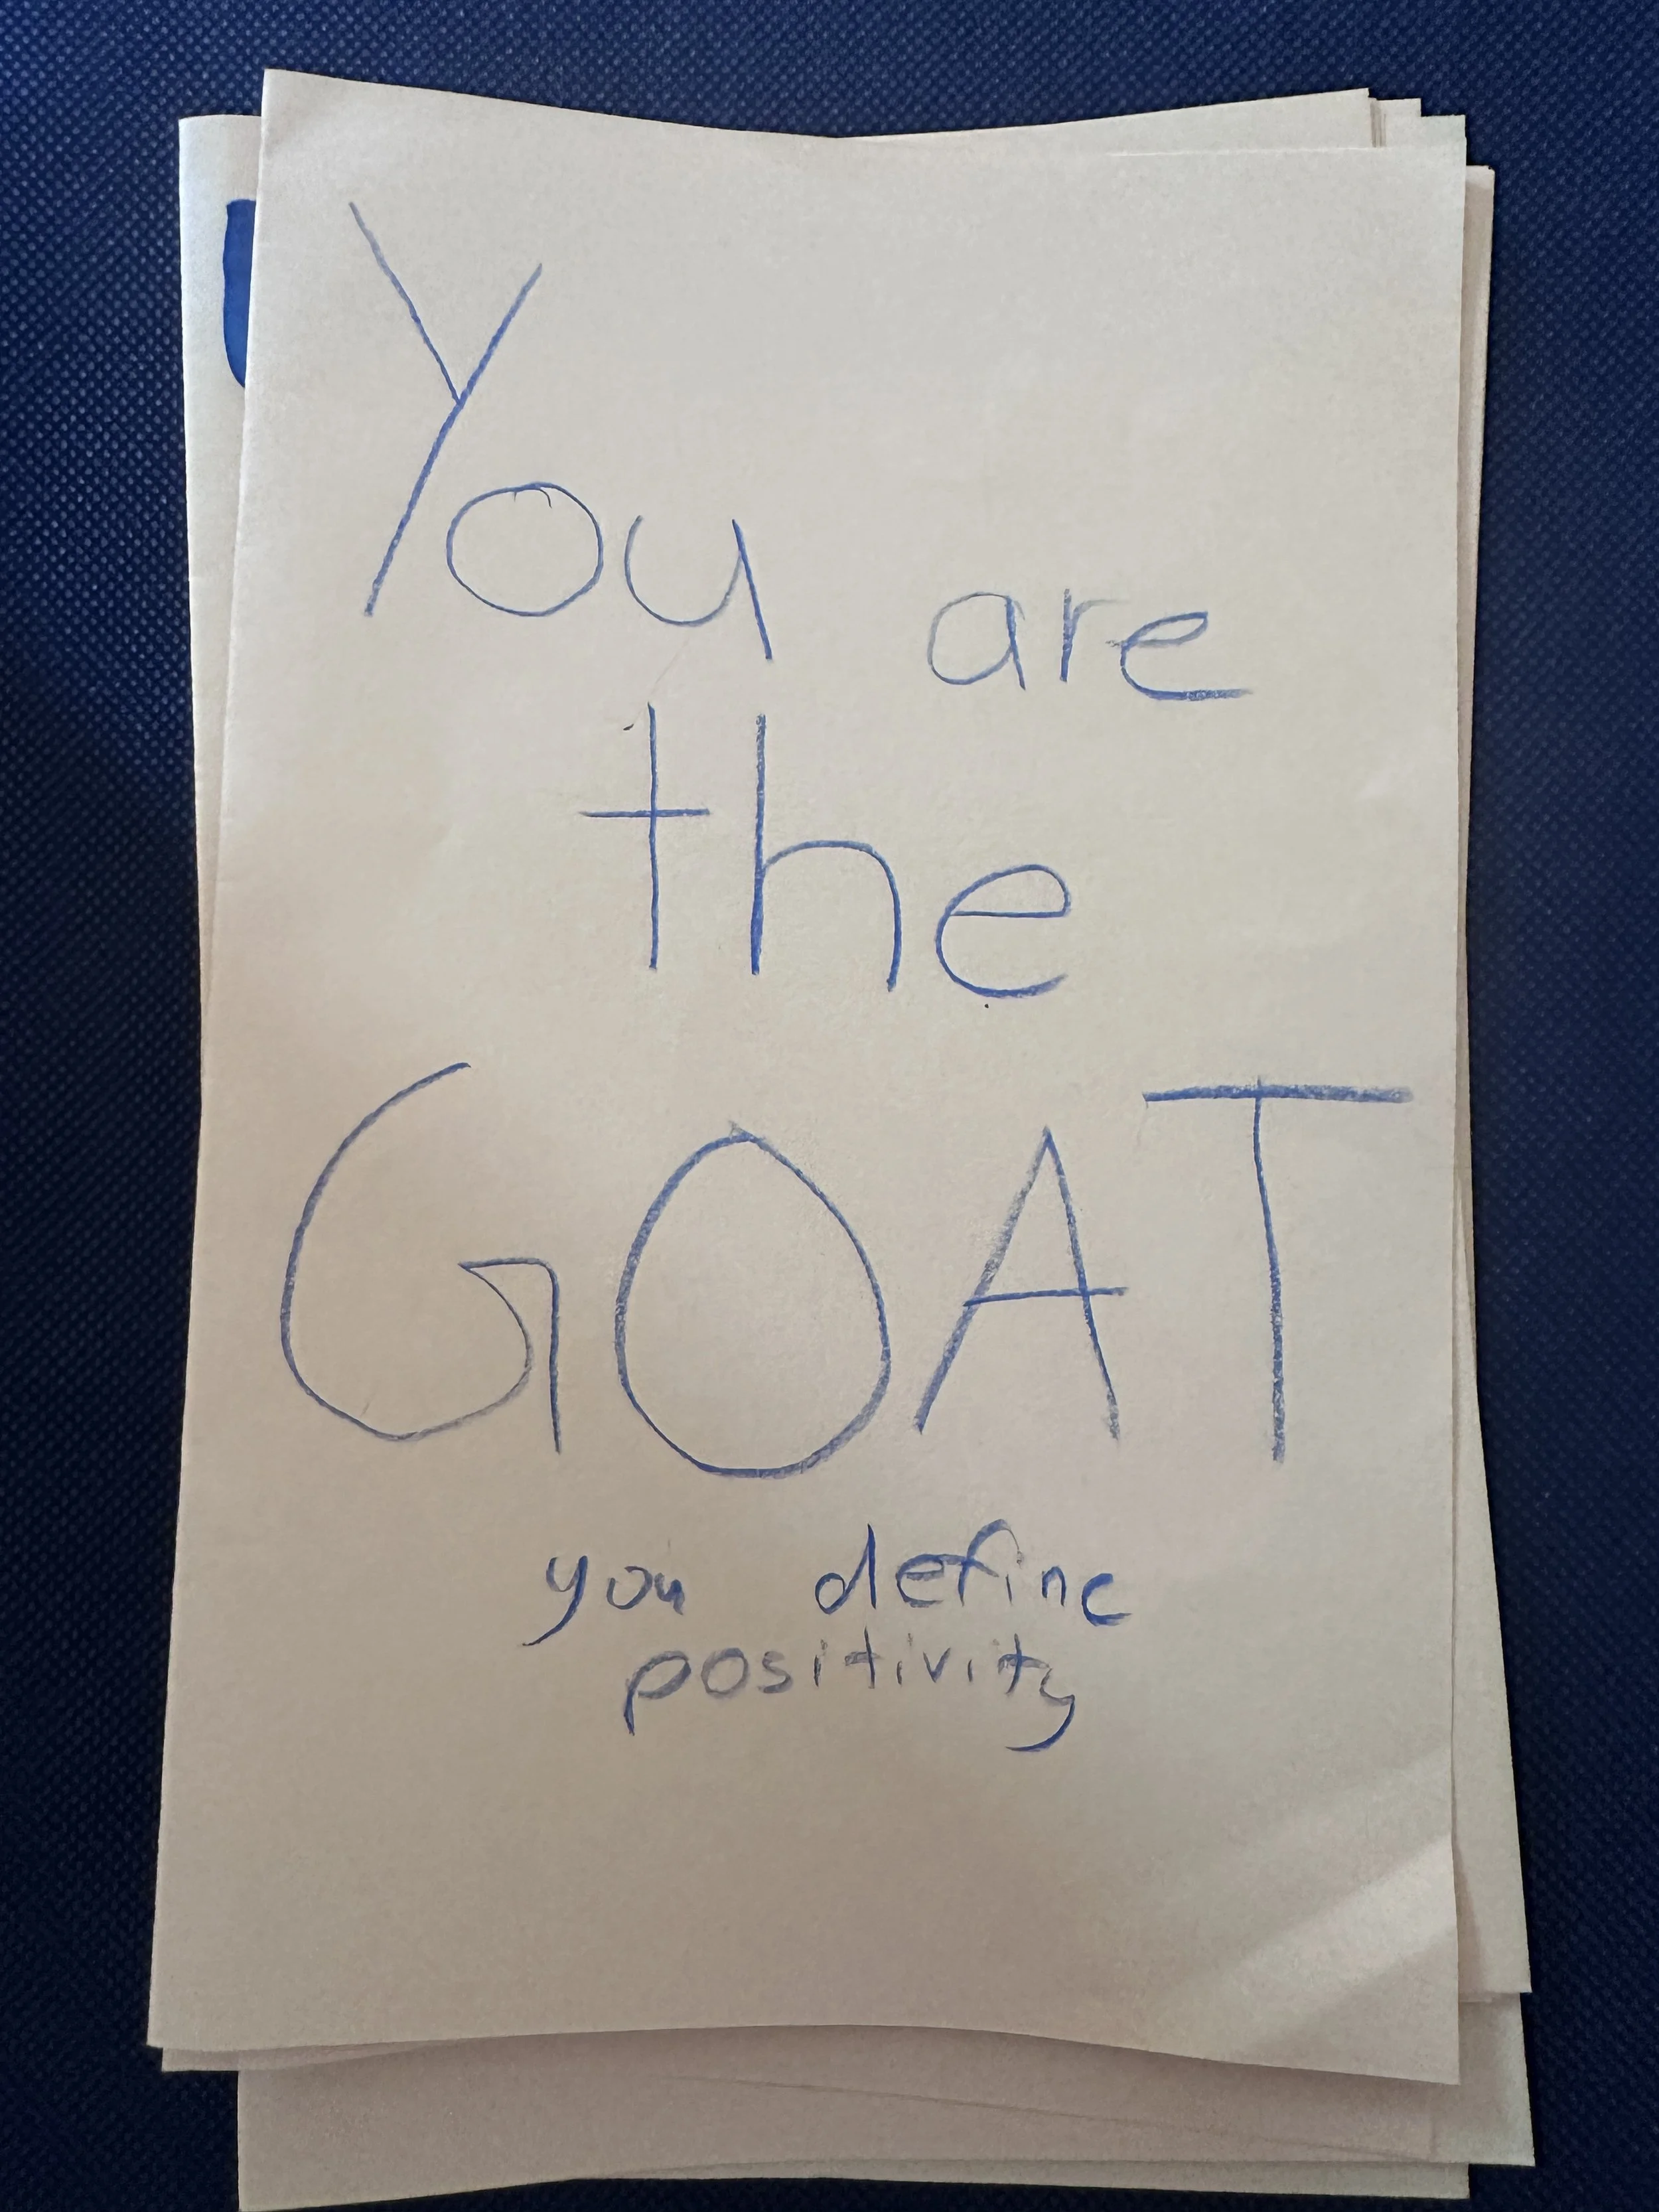 You are
the
GOAT
you define
positivity